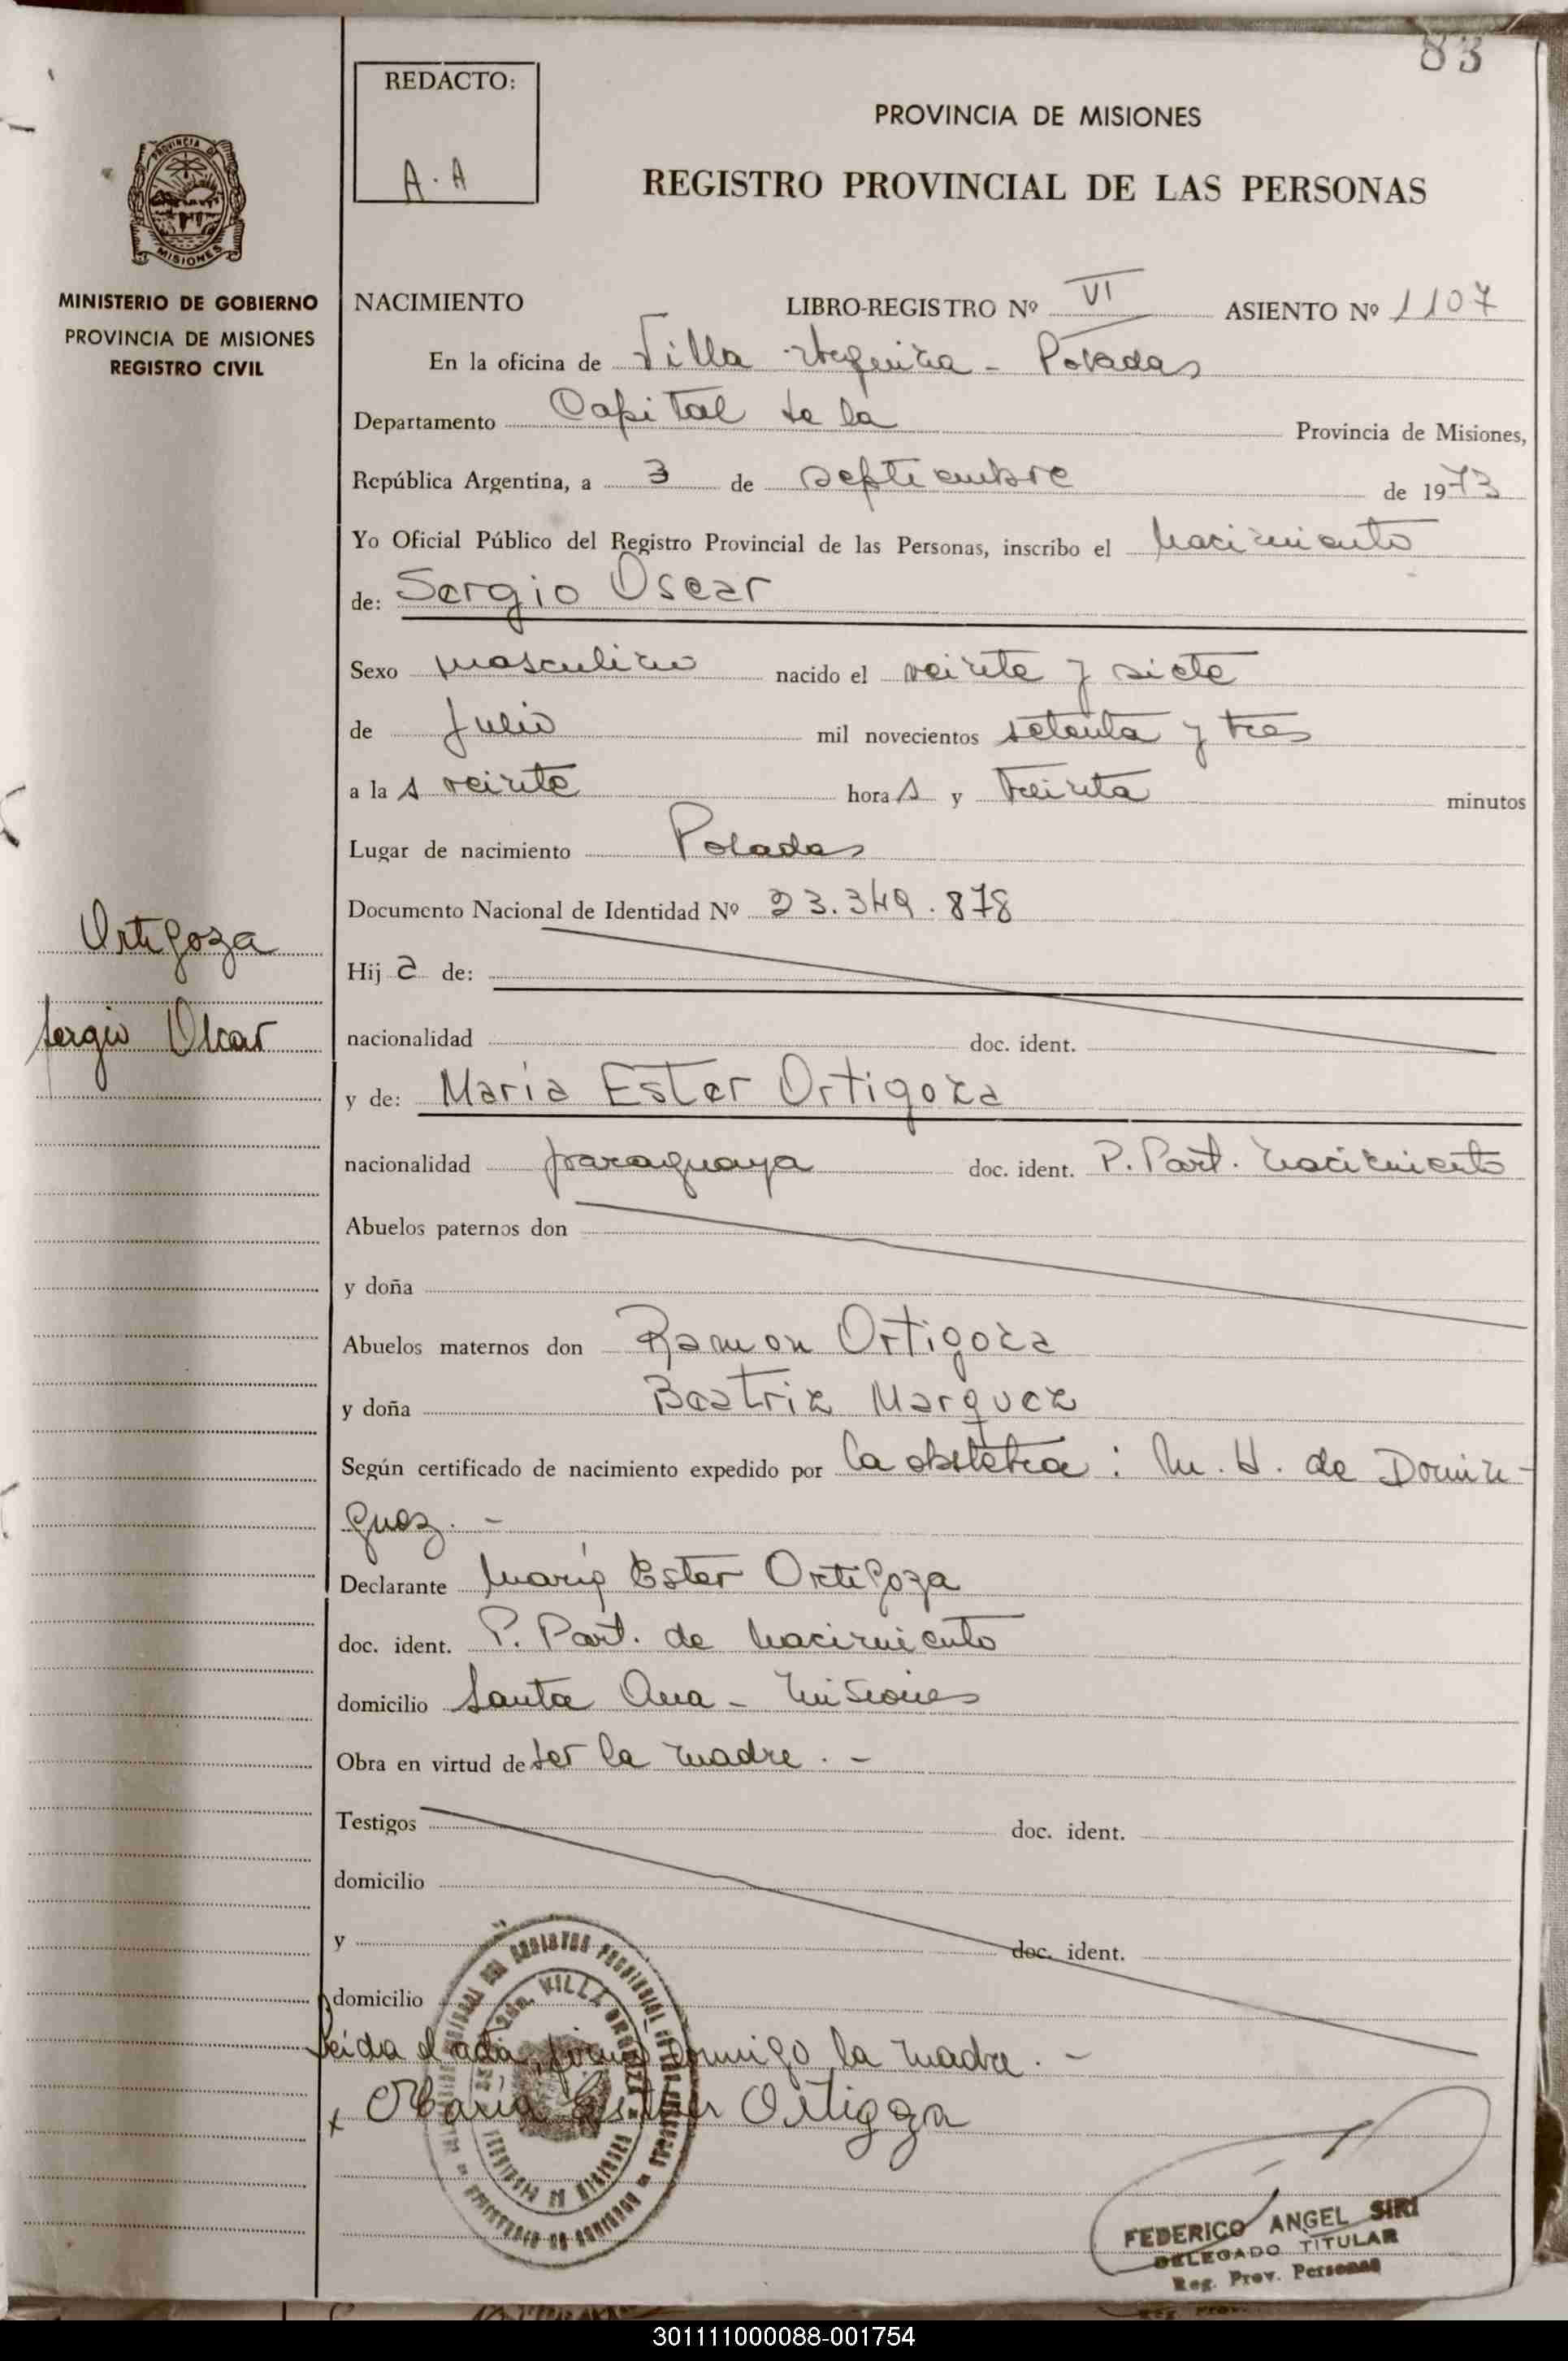 83
REDACTO:
A. A
PROVINCIA DE MISIONES
REGISTRO PROVINCIAL DE LAS PERSONAS
PROVINCIA DE
MISIONES
MINISTERIO DE GOBIERNO
PROVINCIA DE MISIONES
REGISTRO CIVIL
NACIMIENTO LIBRO-REGISTRO Nº VI ASIENTO Nº 1107
En la oficina de Villa Argentina - Posadas
Departamento Capital de la Provincia de Misiones,
República Argentina, a 3 de septiembre de 1973
Yo Oficial Público del Registro Provincial de las Personas, inscribo el nacimiento
de: Sergio Oscar
Sexo masculino nacido el veinte y siete
de Julio mil novecientos setenta y tres
a las veinte horas y treinta minutos
Lugar de nacimiento Posadas
Documento Nacional de Identidad Nº 23.349.878
Ortigoza
Sergio Oscar
Hija de:
nacionalidad doc. ident.
y de: Maria Ester Ortigoza
nacionalidad paraguaya doc. ident. P. Part. nacimiento
Abuelos paternos don
y doña
Abuelos maternos don Ramon Ortigoza
y doña Beatriz Marquez
Según certificado de nacimiento expedido por la obstetra: M. H. de Domin-
guez. -
Declarante María Ester Ortigoza
doc. ident. P. Part. de nacimiento
domicilio Santa Ana - Misiones
Obra en virtud de ser la madre. -
Testigos doc. ident.
domicilio
y doc. ident.
domicilio
Leída el acta, firma conmigo la madre. -
x Maria Ester Ortigoza
FEDERICO ANGEL SIRI
DELEGADO TITULAR
Reg. Prov. Personas
301111000088-001754